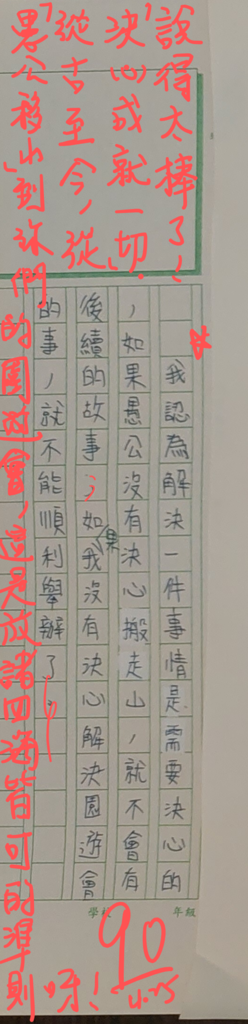 說得太棒了！
「決心成就一切」，
從古至今，從
「愚公移山」到你們的園遊會，這是放諸四海皆可的準則呀！
我認為解決一件事情是需要決心的
，如果愚公沒有決心搬走山，就不會有
後續的故事；如果我沒有決心解決園遊會
的事，就不能順利舉辦了。
90
學校
年級